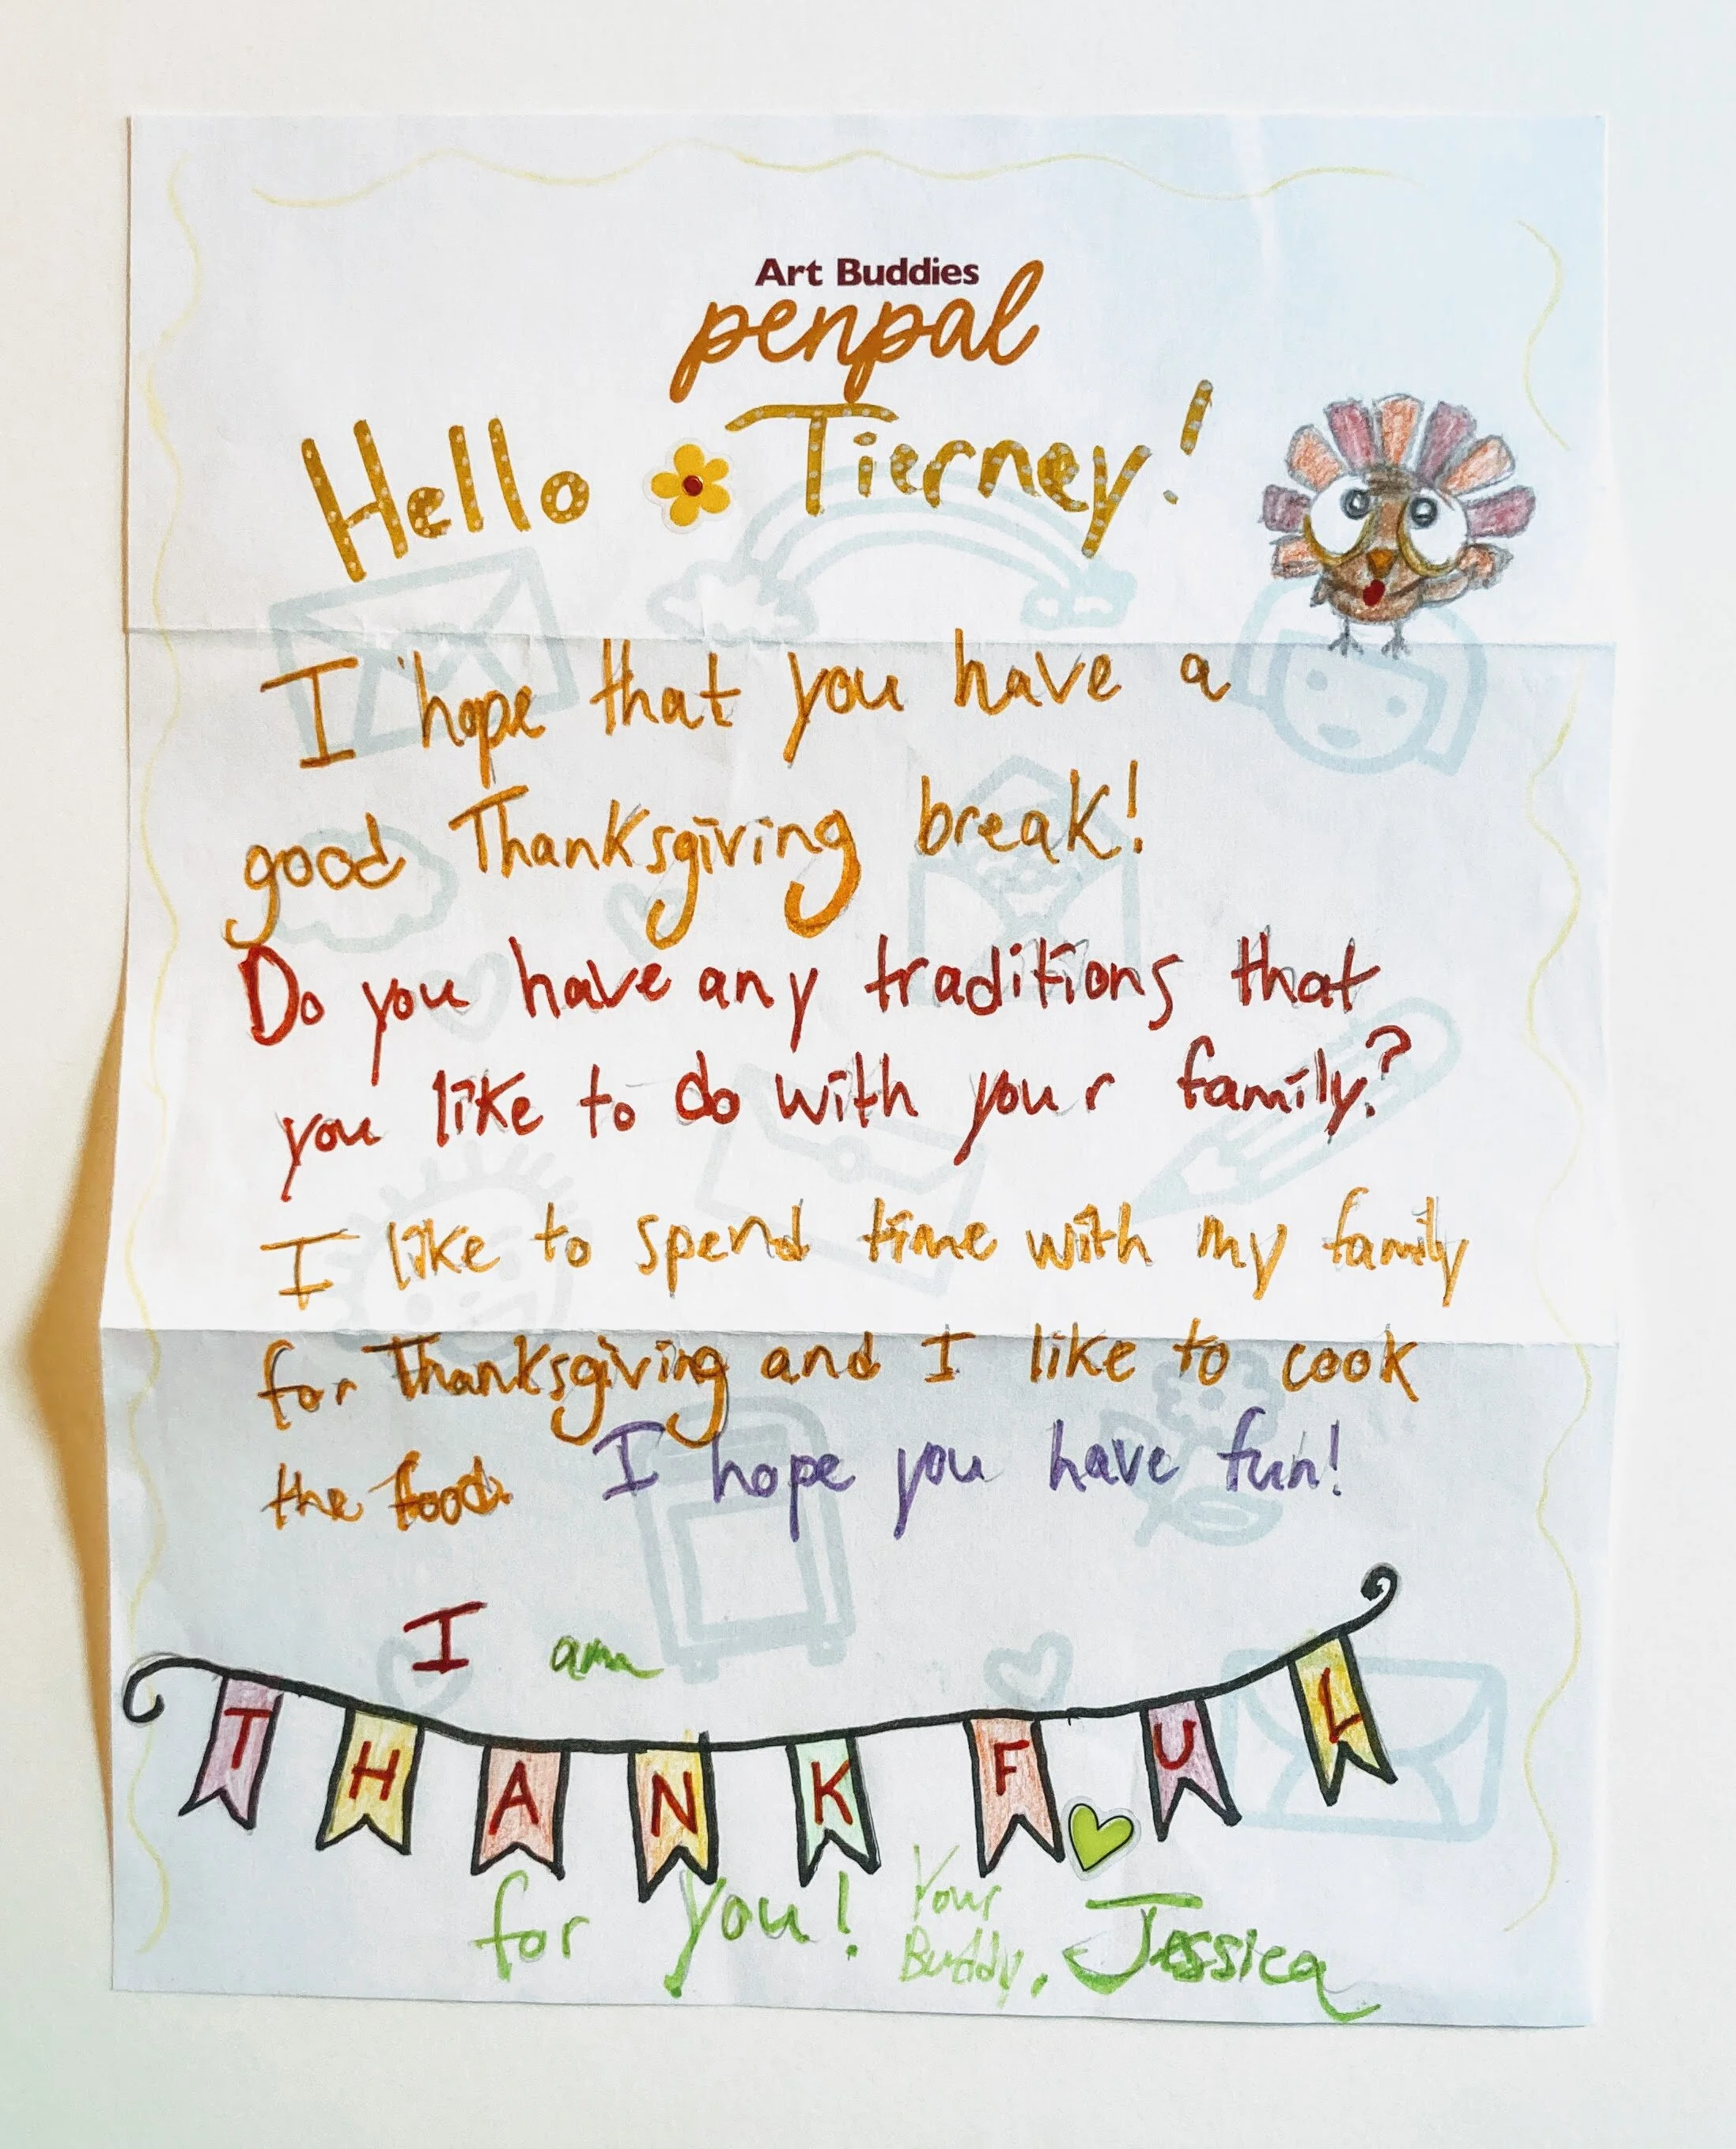 Art Buddies
penpal
Hello Tierney!
I hope that you have a
good Thanksgiving break!
Do you have any traditions that
you like to do with your family?
I like to spend time with my family
for Thanksgiving and I like to cook
the food. I hope you have fun!
I am
THANKFUL
for you! Your
Buddy, Jessica